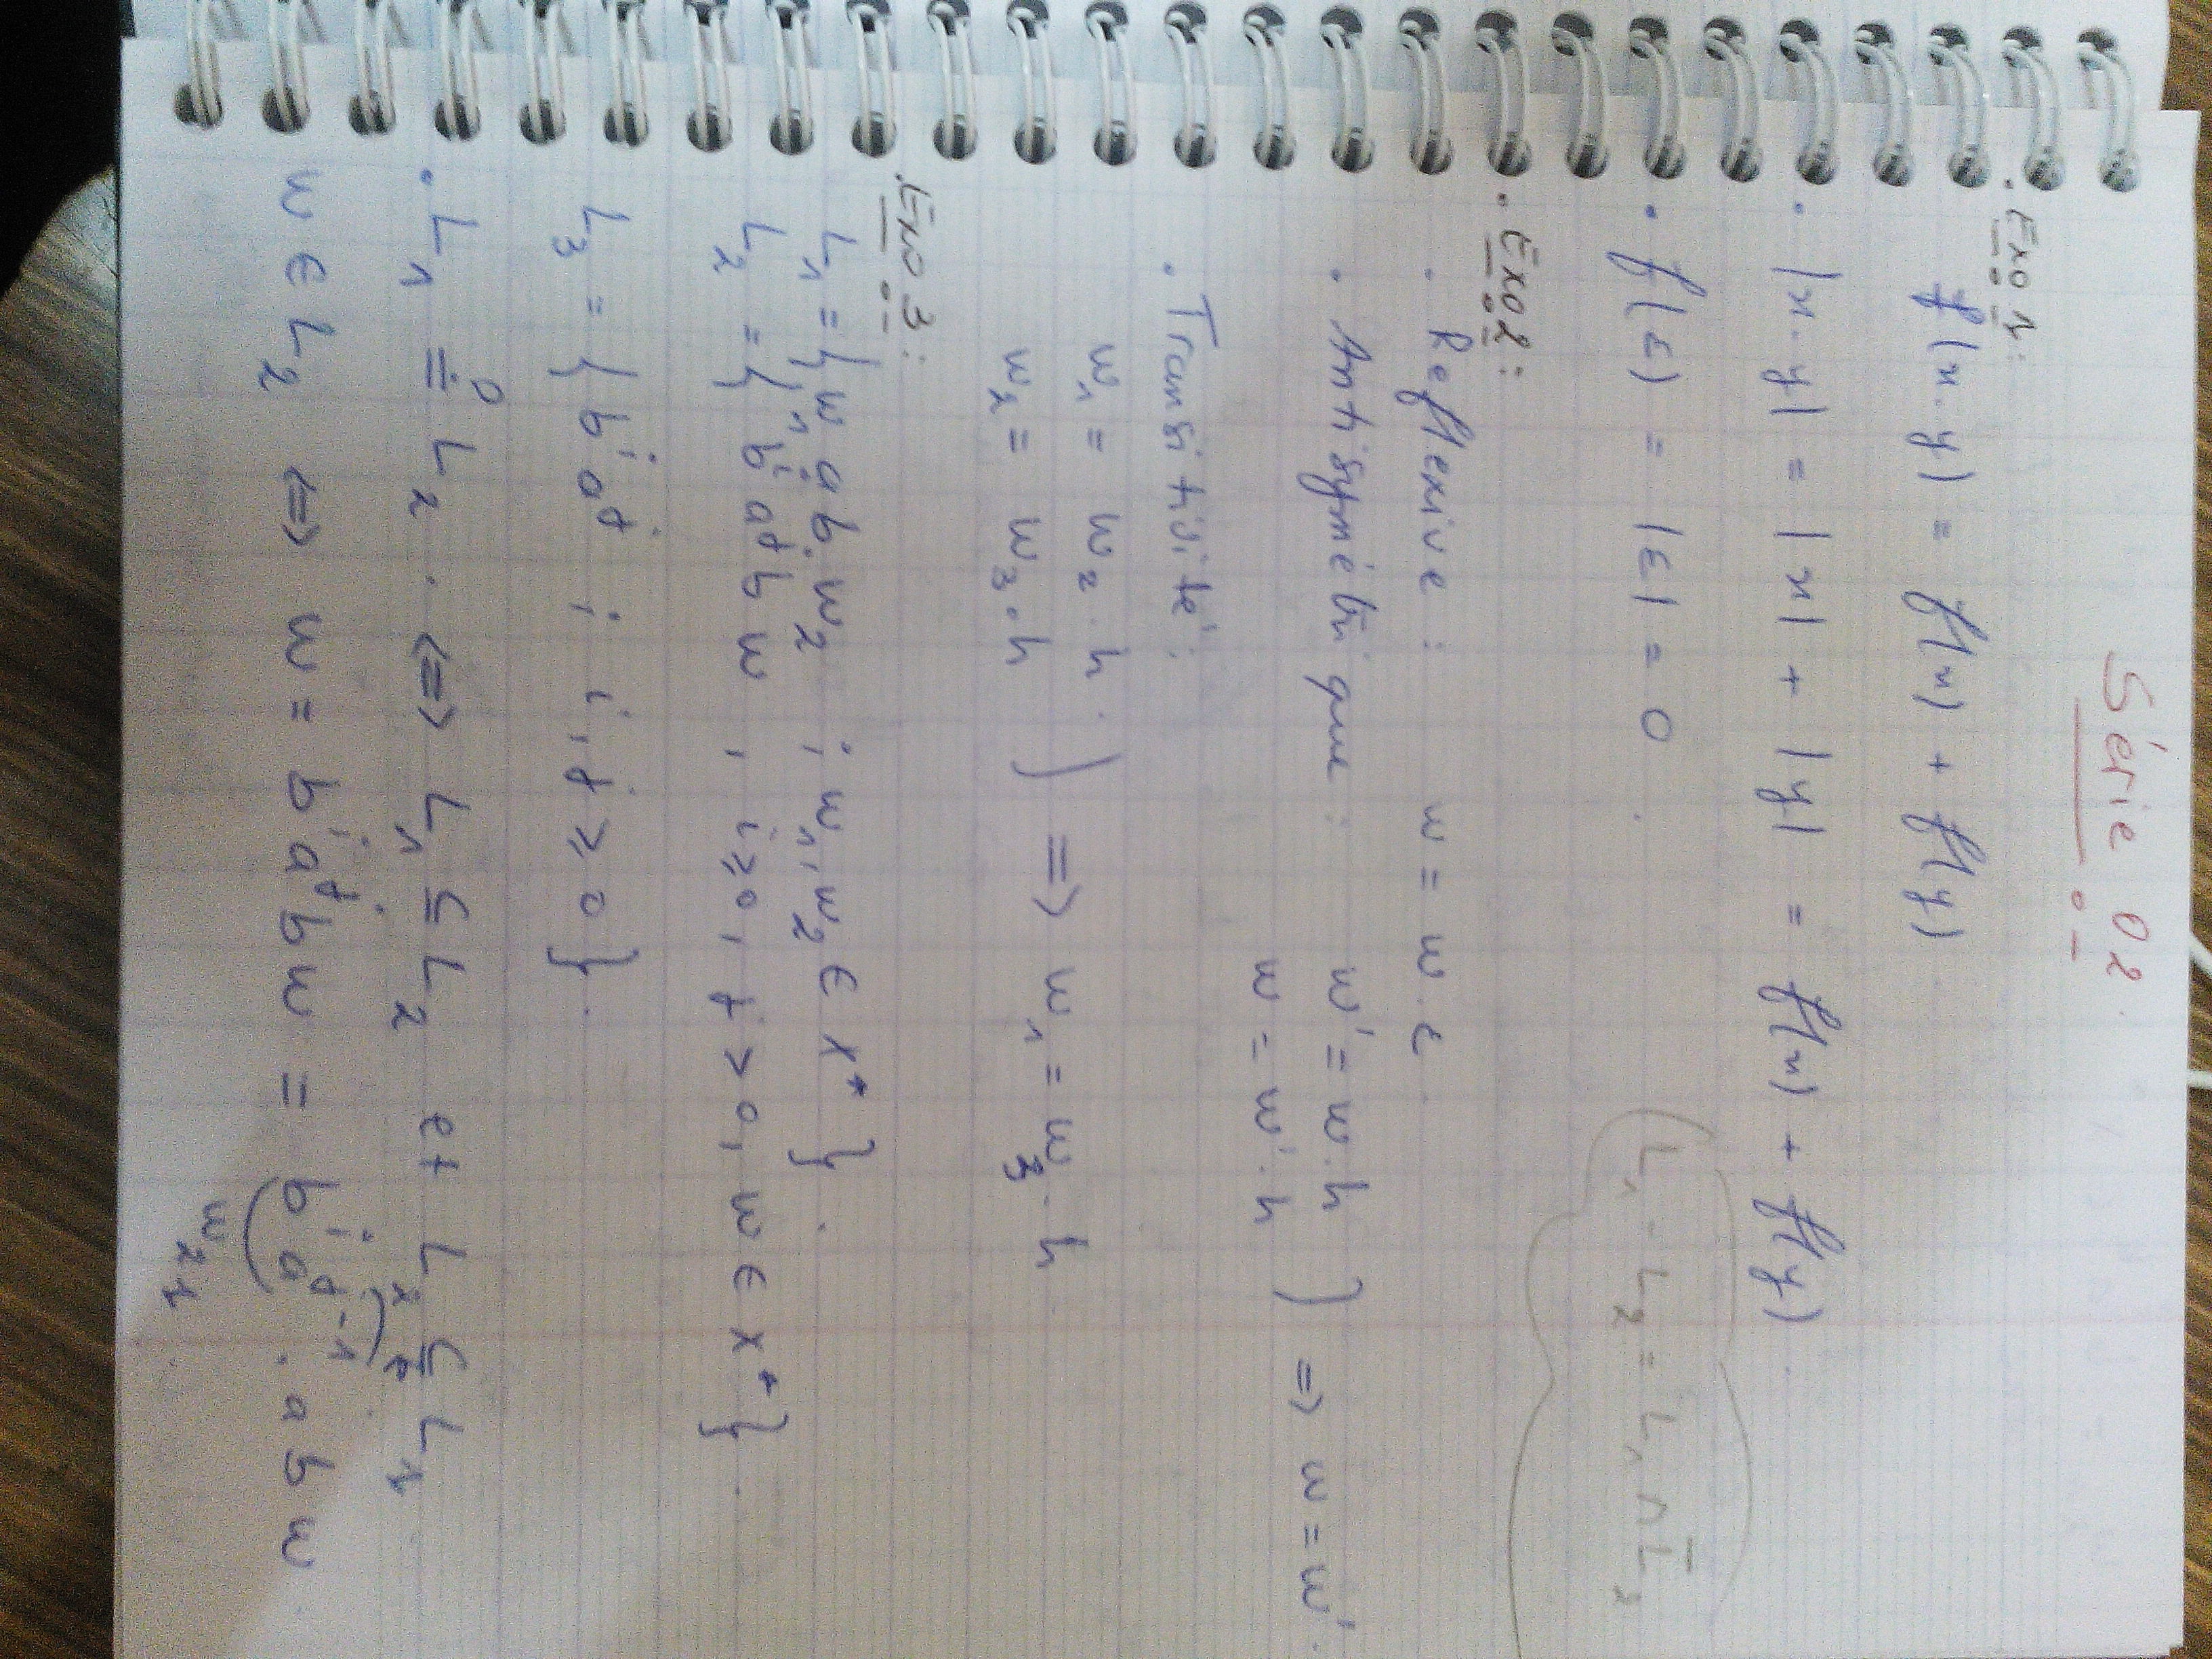 Série 02
. Exo 1:
f(x.y) = f(x) + f(y)
. |x.y| = |x| + |y| = f(x) + f(y).
. f(ε) = |ε| = 0.
L₁ - L₂ = L₁ ∩ L̅₂
. Exo 2:
. Reflexive : w = w.ε.
. Antisymétrique : w' = w.h
w = w'.h } => w = w'.
. Transitivité :
w₁ = w₂.h.
w₂ = w₃.h } => w₁ = w₃.h
. Exo 3:
L₁ = { w₁ a b. w₂ ; w₁, w₂ ∈ X* }.
L₂ = { bⁱ aʲ b w , i ≥ 0, j > 0, w ∈ X* }.
L₃ = { bⁱ aʲ ; i, j ≥ 0 }.
. L₁ ≟ L₂. <=> L₁ ⊆ L₂ et L₂ ⊆ L₁
w ∈ L₂ <=> w = bⁱ aʲ b w = bⁱ aʲ⁻¹ . a b w
w₂₁.